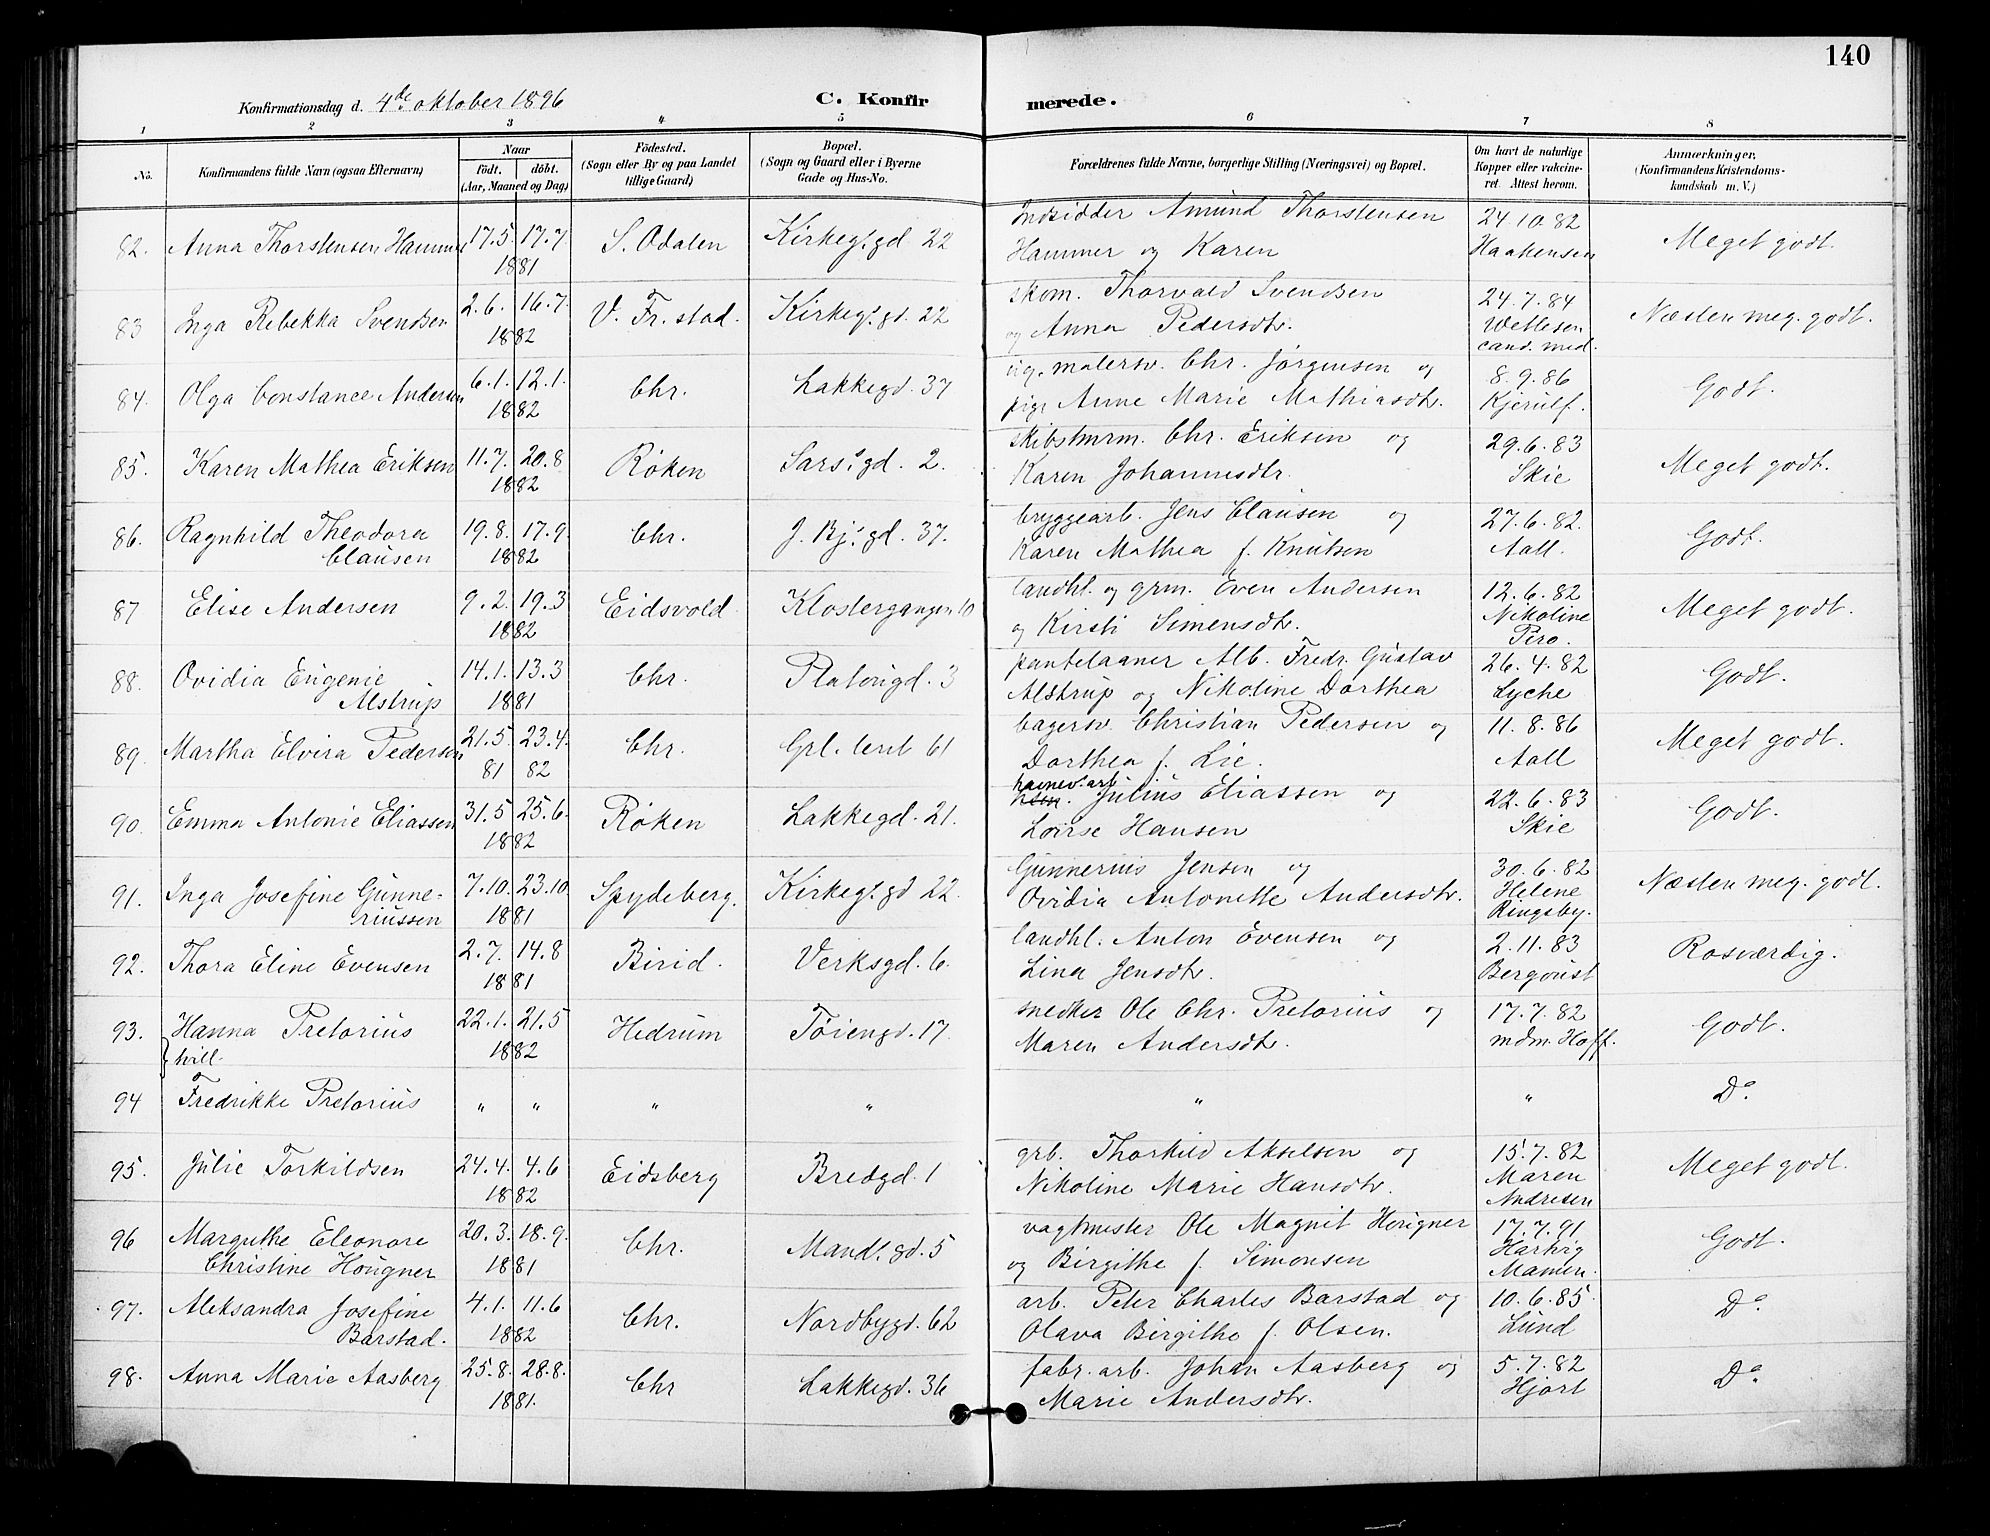 140
Konfirmationsdag d. 4de oktober 1896 C. Konfirmerede.
1 2 3 4 5 6 7 8
No. Konfirmandens fulde Navn (ogsaa Efternavn) Naar födt. döbt. (Aar, Maaned og Dag) Födested. (Sogn eller By og paa Landet tillige Gaard) Bopæl. (Sogn og Gaard eller i Byerne Gade og Hus-No. Forældrenes fulde Navne, borgerlige Stilling (Næringsvei) og Bopæl. Om havt de naturlige Kopper eller vakcineret. Attest herom. Anmærkninger. (Konfirmandens Kristendomskundskab m. V.)
82. Anna Thorstensen Hammer 17.5. 17.7. 1881 S. Odalen Kirkegt.gd 22 Indsidder Amund Thorstensen
Hammer og Karen 24.10.82 Haakensen Meget godt.
83 Inga Rebekka Svendsen 2.6. 16.7. 1882 V. Fr.stad. Kirkegt.gd. 22 skom. Thorvald Svendsen
og Anna Pedersdtr. 24.7.84 Wetlesen cand. med. Næsten meg. godt.
84. Olga Constance Andersen 6.1. 12.1. 1882 Chr. Lakkegd. 37 ug. malersv. Chr. Jørgensen og
pige Anne Marie Mathiasdtr. 8.9.86 Kjerulf. Godt.
85. Karen Mathea Eriksen 11.7. 20.8 1882 Røken Sarst.gd. 2. skibstmrm. Chr. Eriksen og
Karen Johannesdtr. 29.6.83 Skie Meget godt.
86. Ragnhild Theodora
Clausen 19.8. 17.9. 1882 Chr. J. Bj.s gd. 37. bryggearb. Jens Clausen og
Karen Mathea f. Knutsen 27.6.82. Aall. Godt.
87 Elise Andersen 9.2. 19.3 1882 Eidsvold Klostergangen 10 landhl. og grm. Even Andersen
og Kirsti Simensdtr. 12.6.82 Nikoline Pero. Meget godt.
88. Ovidia Eugenie
Alstrup 14.1. 13.3 1881 Chr. Platougd. 3 pantelaaner Alb. Fredr. Gustav
Alstrup og Nikoline Dorthea 26.4.82 Lyche Godt.
89. Martha Elvira Pedersen 21.5. 23.4. 81 82 Chr. Grl. Leret 61 bagersv. Christian Pedersen og
Dorthea f. Lie. 11.8.86 Aall Meget godt.
90. Emma Antonie Eliassen 31.5 25.6. 1882 Røken Lakkegd. 21. havnev.arb. Julius Eliassen og
Lovise Hansen 22.6.83 Skie Godt.
91. Inga Josefine Gunne-
riussen 7.10. 23.10 1881 Spydeberg. Kirkegt.gd 22. Gunnerius Jensen og
Ovidia Antonette Andersdtr. 30.6.82 Helene Ringsby. Næsten meg. godt.
92. Thora Eline Evensen 2.7. 14.8 1881 Birid. Verksgd. 6. landhl. Anton Evensen og
Lina Jensdtr. 2.11.83 Bergquist Rosværdig.
93. Hanna Pretorius
tvill. 22.1. 21.5 1882 Hedrum Töiengd. 17 snedker Ole Chr. Pretorius og
Maren Andersdtr. 17.7.82 mdm. Hoff. Godt.
94 Fredrikke Pretorius " " " " " " Do
95. Julie Torkildsen 24.4. 4.6 1882 Eidsberg Bredgd. 1 grb. Thorkild Akselsen og
Nikoline Marie Hansdtr. 15.7.82 Maren Andresen Meget godt.
96 Margrethe Eleonore
Christine Hougner 20.3. 18.9. 1881 Chr. Mandt.gd. 5 vagtmester Ole Magnit Hougner
og Birgithe f. Simonsen 17.7.91 Hartvig Mamen. Godt.
97. Aleksandra Josefine
Barstad. 4.1. 11.6 1882 Chr. Nordbygd. 62 arb. Peter Charles Barstad og
Olava Birgithe f. Olsen. 10.6.85. Lund Do
98. Anna Marie Aasberg 25.8. 28.8. 1881. Chr Lakkegd. 36 fabr. arb. Johan Aasberg og
Marie Andersdtr. 5.7.82 Hjort Do